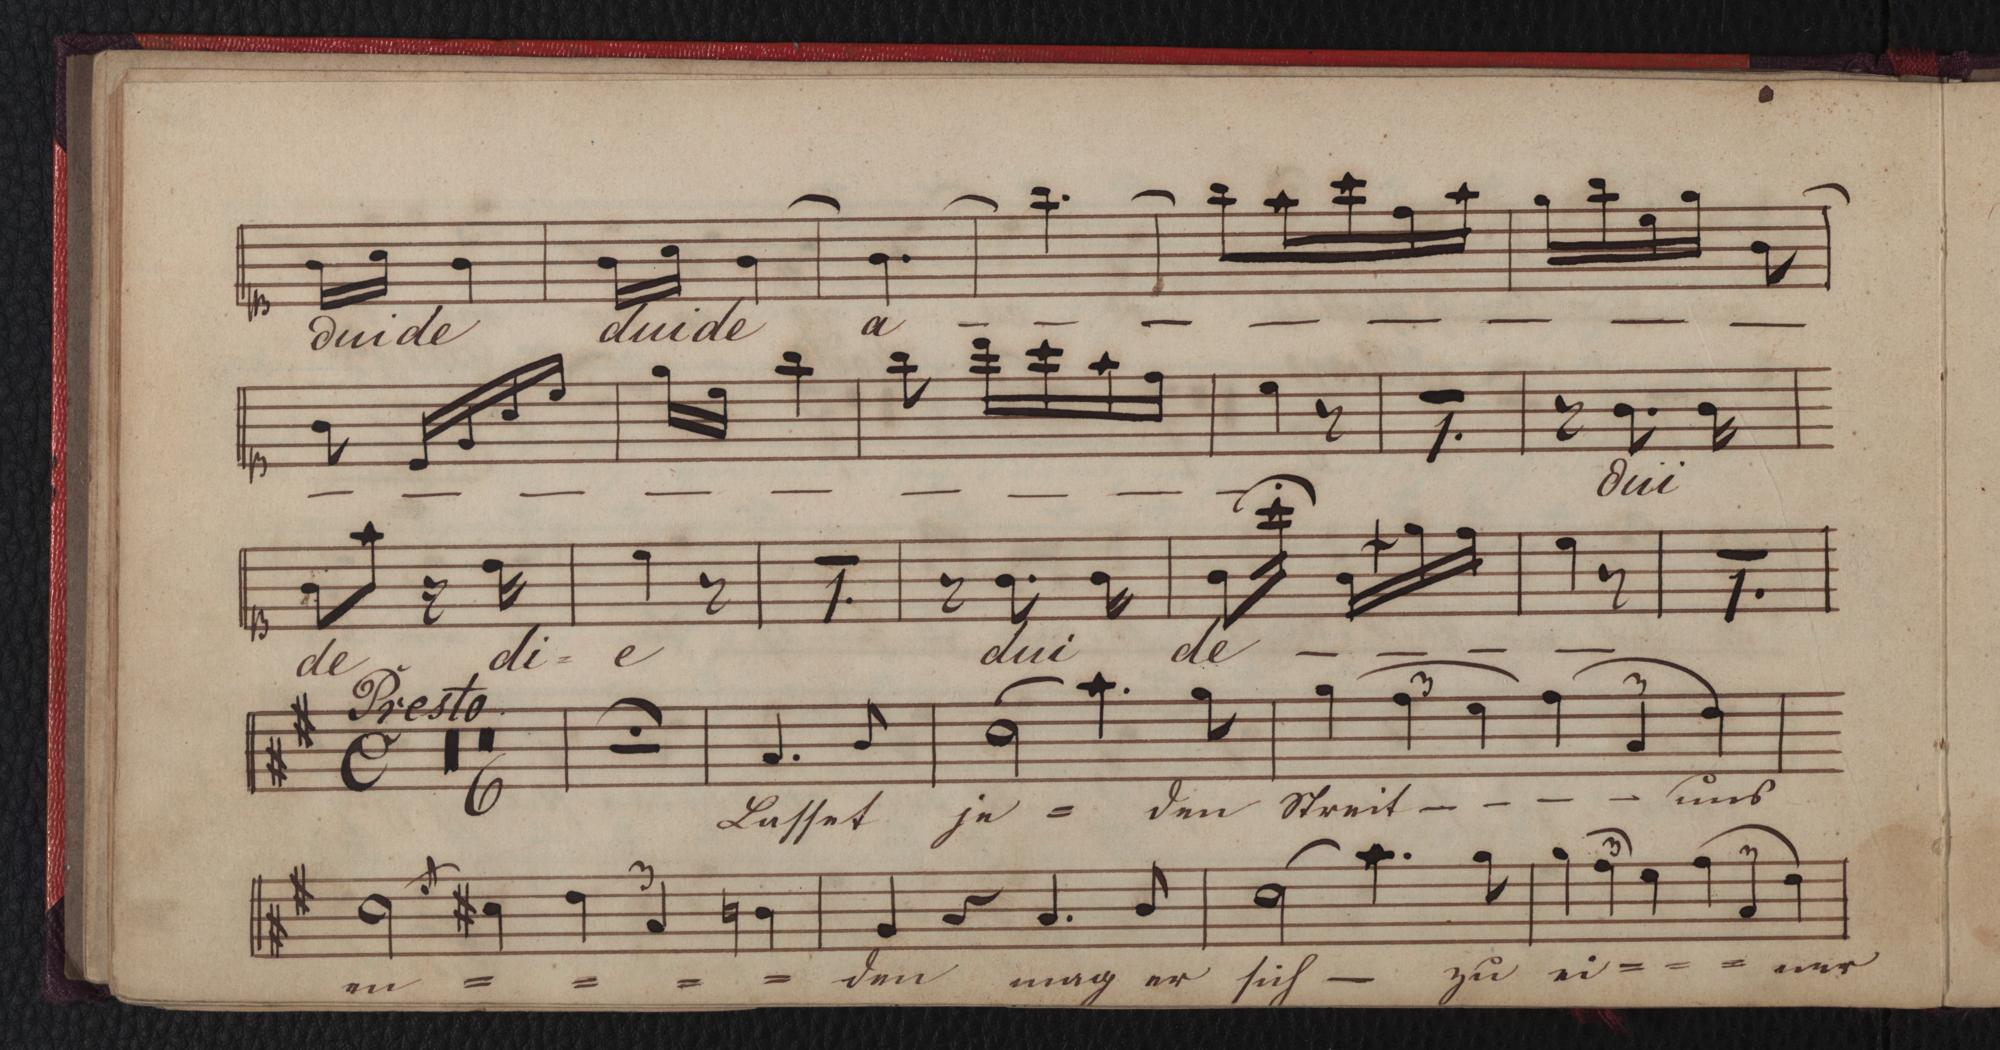 duide duide a
dui
de di = e dui de
Presto
6
Lasset je = den Streit - - - - uns
3 3
en = = = = den mag er sich — zu ei = = = ner
3 3 3